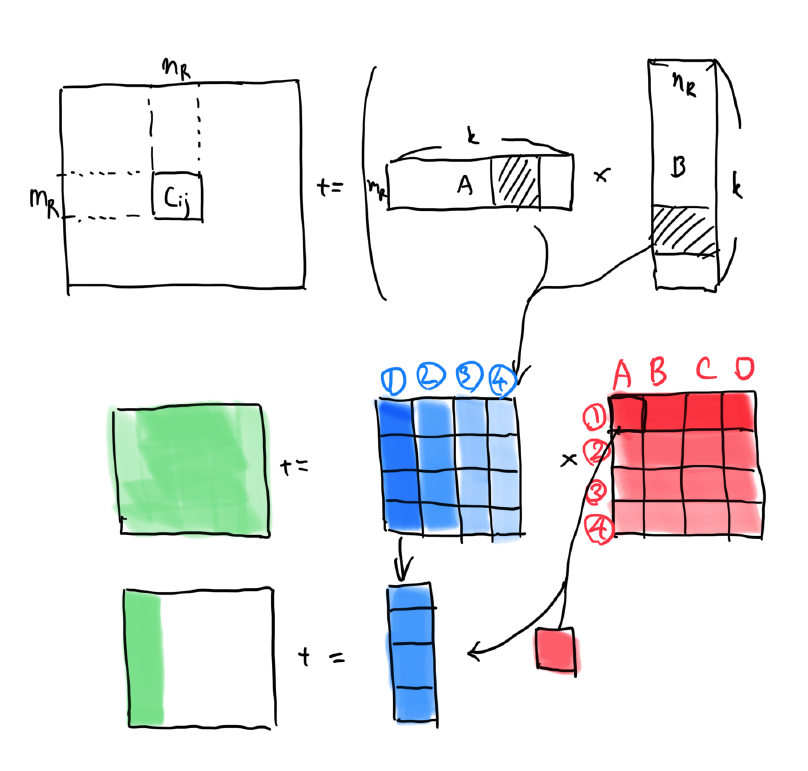 n_R
m_R C_ij += ( m_R k A × n_R B k )
① ② ③ ④ A B C D
+= × ① ② ③ ④
+ =